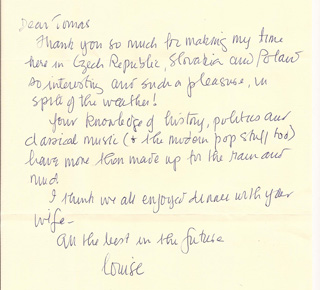 Dear Tomas
Thank you so much for making my time
here in Czech Republic, Slovakia and Poland
so interesting and such a pleasure, in
spite of the weather!
Your knowledge of history, politics and
classical music (& the modern pop stuff too)
have more then made up for the rain and
mud.
I think we all enjoyed dinner with your
wife –
All the best in the future
Louise